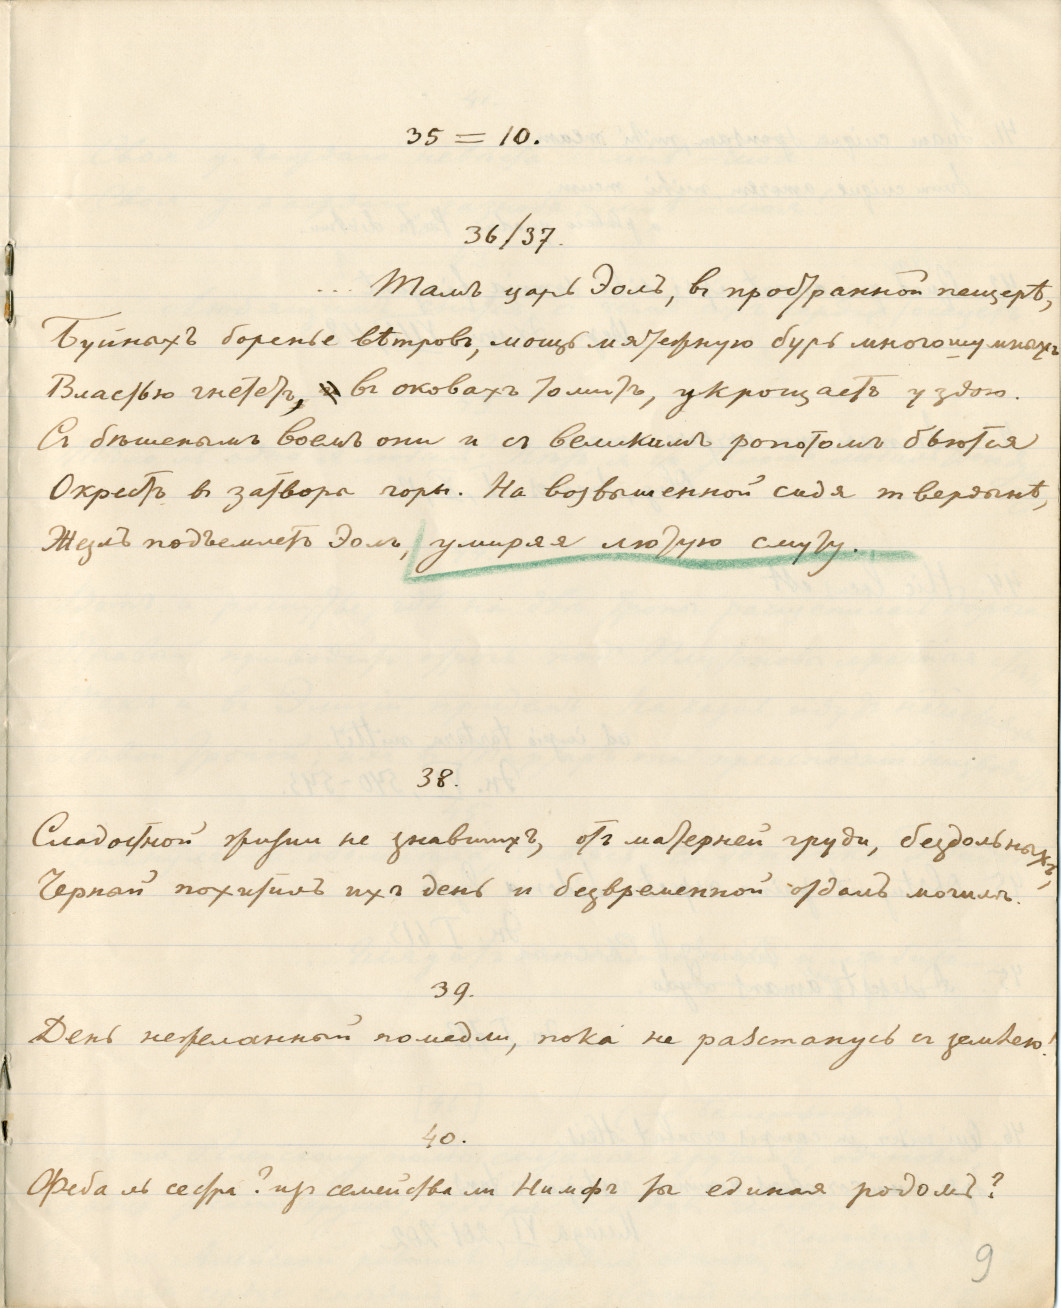 35 = 10.
36/37.
... Тамъ царь Эолъ, въ пространной пещерѣ,
Буйныхъ боренье вѣтровъ, мощь мятежную бурь многошумныхъ
Властью гнететъ, въ оковахъ томитъ, укрощаетъ уздою.
Съ бѣшенымъ воемъ они и съ великимъ ропотомъ бьются
Окрестъ въ затвора горы. На возвышенной сидя твердынѣ,
Жезлъ подъемлетъ Эолъ, умиряя лютую смуту.
38.
Сладостной жизни не знавшихъ, отъ матерней груди, бездольныхъ,
Черный похитилъ ихъ день и безвременной отдалъ могилѣ.
39.
День нежеланный помедли, пока не разстанусь съ землею!
40.
Феба ль сестра? изъ семейства ли Нимфъ ты единая родомъ?
9